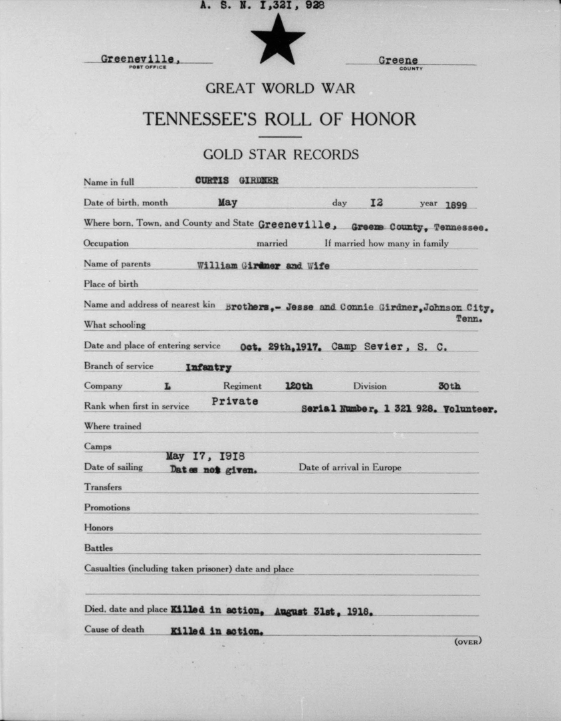 A. S. N. I,32I, 928
Greeneville, Greene
POST OFFICE COUNTY
GREAT WORLD WAR
TENNESSEE'S ROLL OF HONOR
GOLD STAR RECORDS
Name in full CURTIS GIRDNER
Date of birth, month May day I2 year 1899
Where born, Town, and County and State Greeneville, Greene County, Tennessee.
Occupation married If married how many in family
Name of parents William Girdner and Wife
Place of birth
Name and address of nearest kin Brothers,- Jesse and Connie Girdner, Johnson City,
Tenn.
What schooling
Date and place of entering service Oct. 29th, 1917. Camp Sevier, S. C.
Branch of service Infantry
Company L Regiment 120th Division 30th
Rank when first in service Private Serial Number, 1 321 928. Volunteer.
Where trained
Camps
May I7, I9I8
Date of sailing Dates not given. Date of arrival in Europe
Transfers
Promotions
Honors
Battles
Casualties (including taken prisoner) date and place
Died, date and place Killed in action, August 31st, 1918.
Cause of death Killed in action.
(OVER)